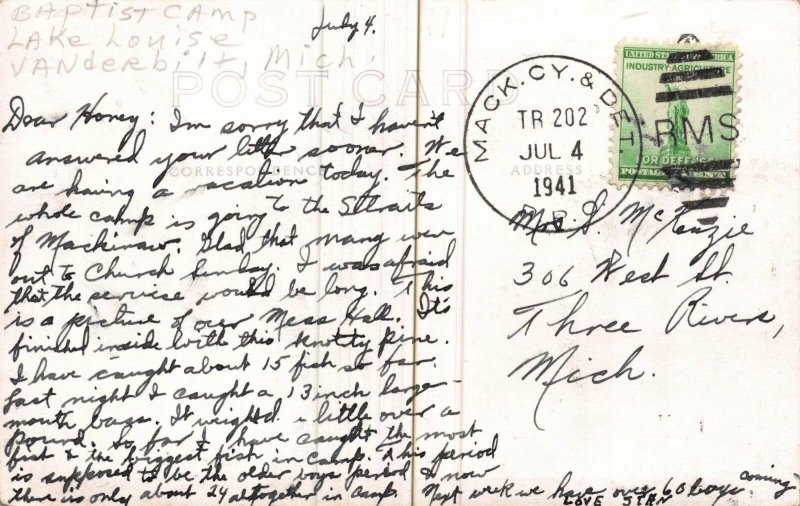 BAPTIST CAMP
LAKE LOUISE
VANDERBILT, Mich.
July 4.
POST CARD
CORRESPONDENCE
ADDRESS
Dear Honey: I'm sorry that I haven't
answered your letter sooner. We
are having a vacation today. The
whole camp is going to the Straits
of Mackinaw. Glad that many were
out to Church Sunday. I was afraid
that the service would be long. This
is a picture of our Mess Hall. It's
finished inside with this knotty pine.
I have caught about 15 fish so far.
Last night I caught a 13 inch large-
mouth bass. It weighed a little over a
pound. So far I have caught the most
fish & the biggest fish in camp. This period
is supposed to be the older boys period & now
there is only about 24 altogether in camp.
Next week we have over 60 boys coming
LOVE STAN
MACK. CY. & DET.
TR 202
JUL 4
1941
R.P.O.
RMS
UNITED STATES OF AMERICA
INDUSTRY-AGRICULTURE
FOR DEFENSE
POSTAGE
S. McKenzie
306 West St.
Three Rivers,
Mich.